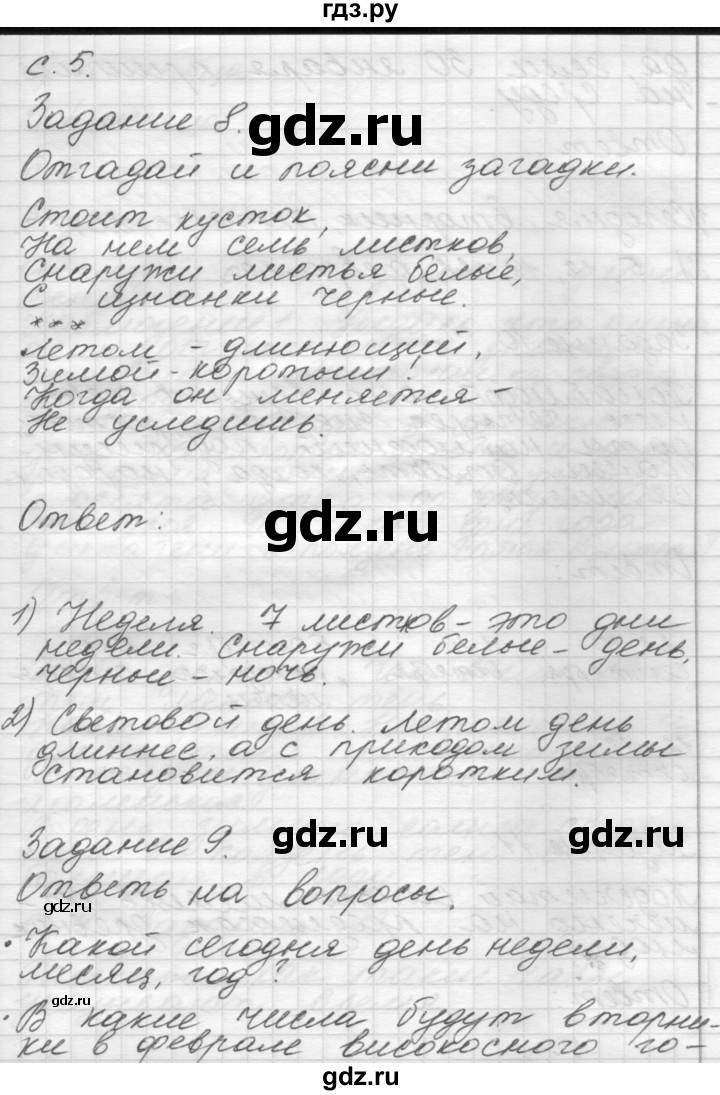 гдз.ру
с. 5.
Задание 8.
gdz.ru
Отгадай и поясни загадки.
Стоит кусток,
На нем семь листков,
Снаружи листья белые,
С изнанки черные.
***
Летом - длинющий,
Зимой - коротыш!
Когда он меняется -
Не уследишь.
Ответ:
gdz.ru
1) Неделя. 7 листков - это дни
недели. Снаружи белые - день,
черные - ночь.
2) Световой день. Летом день
длиннее, а с приходом зимы
становится коротким.
Задание 9.
gdz.ru
gdz.ru
Ответь на вопросы.
gdz.ru
• Какой сегодня день недели,
месяц, год?
gdz.ru
• В какие числа будут вторни-
ки в феврале високосного го-
gdz.ru